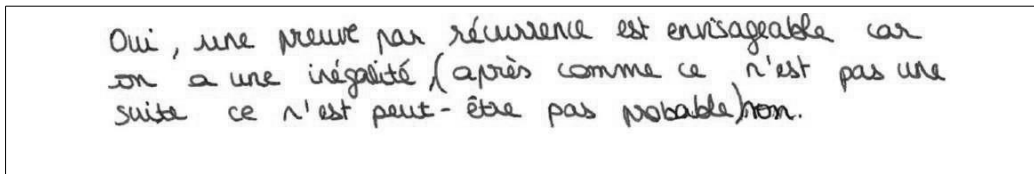 Oui, une preuve par récurrence est envisageable car
on a une inégalité, (après comme ce n'est pas une
suite ce n'est peut-être pas probable) non.